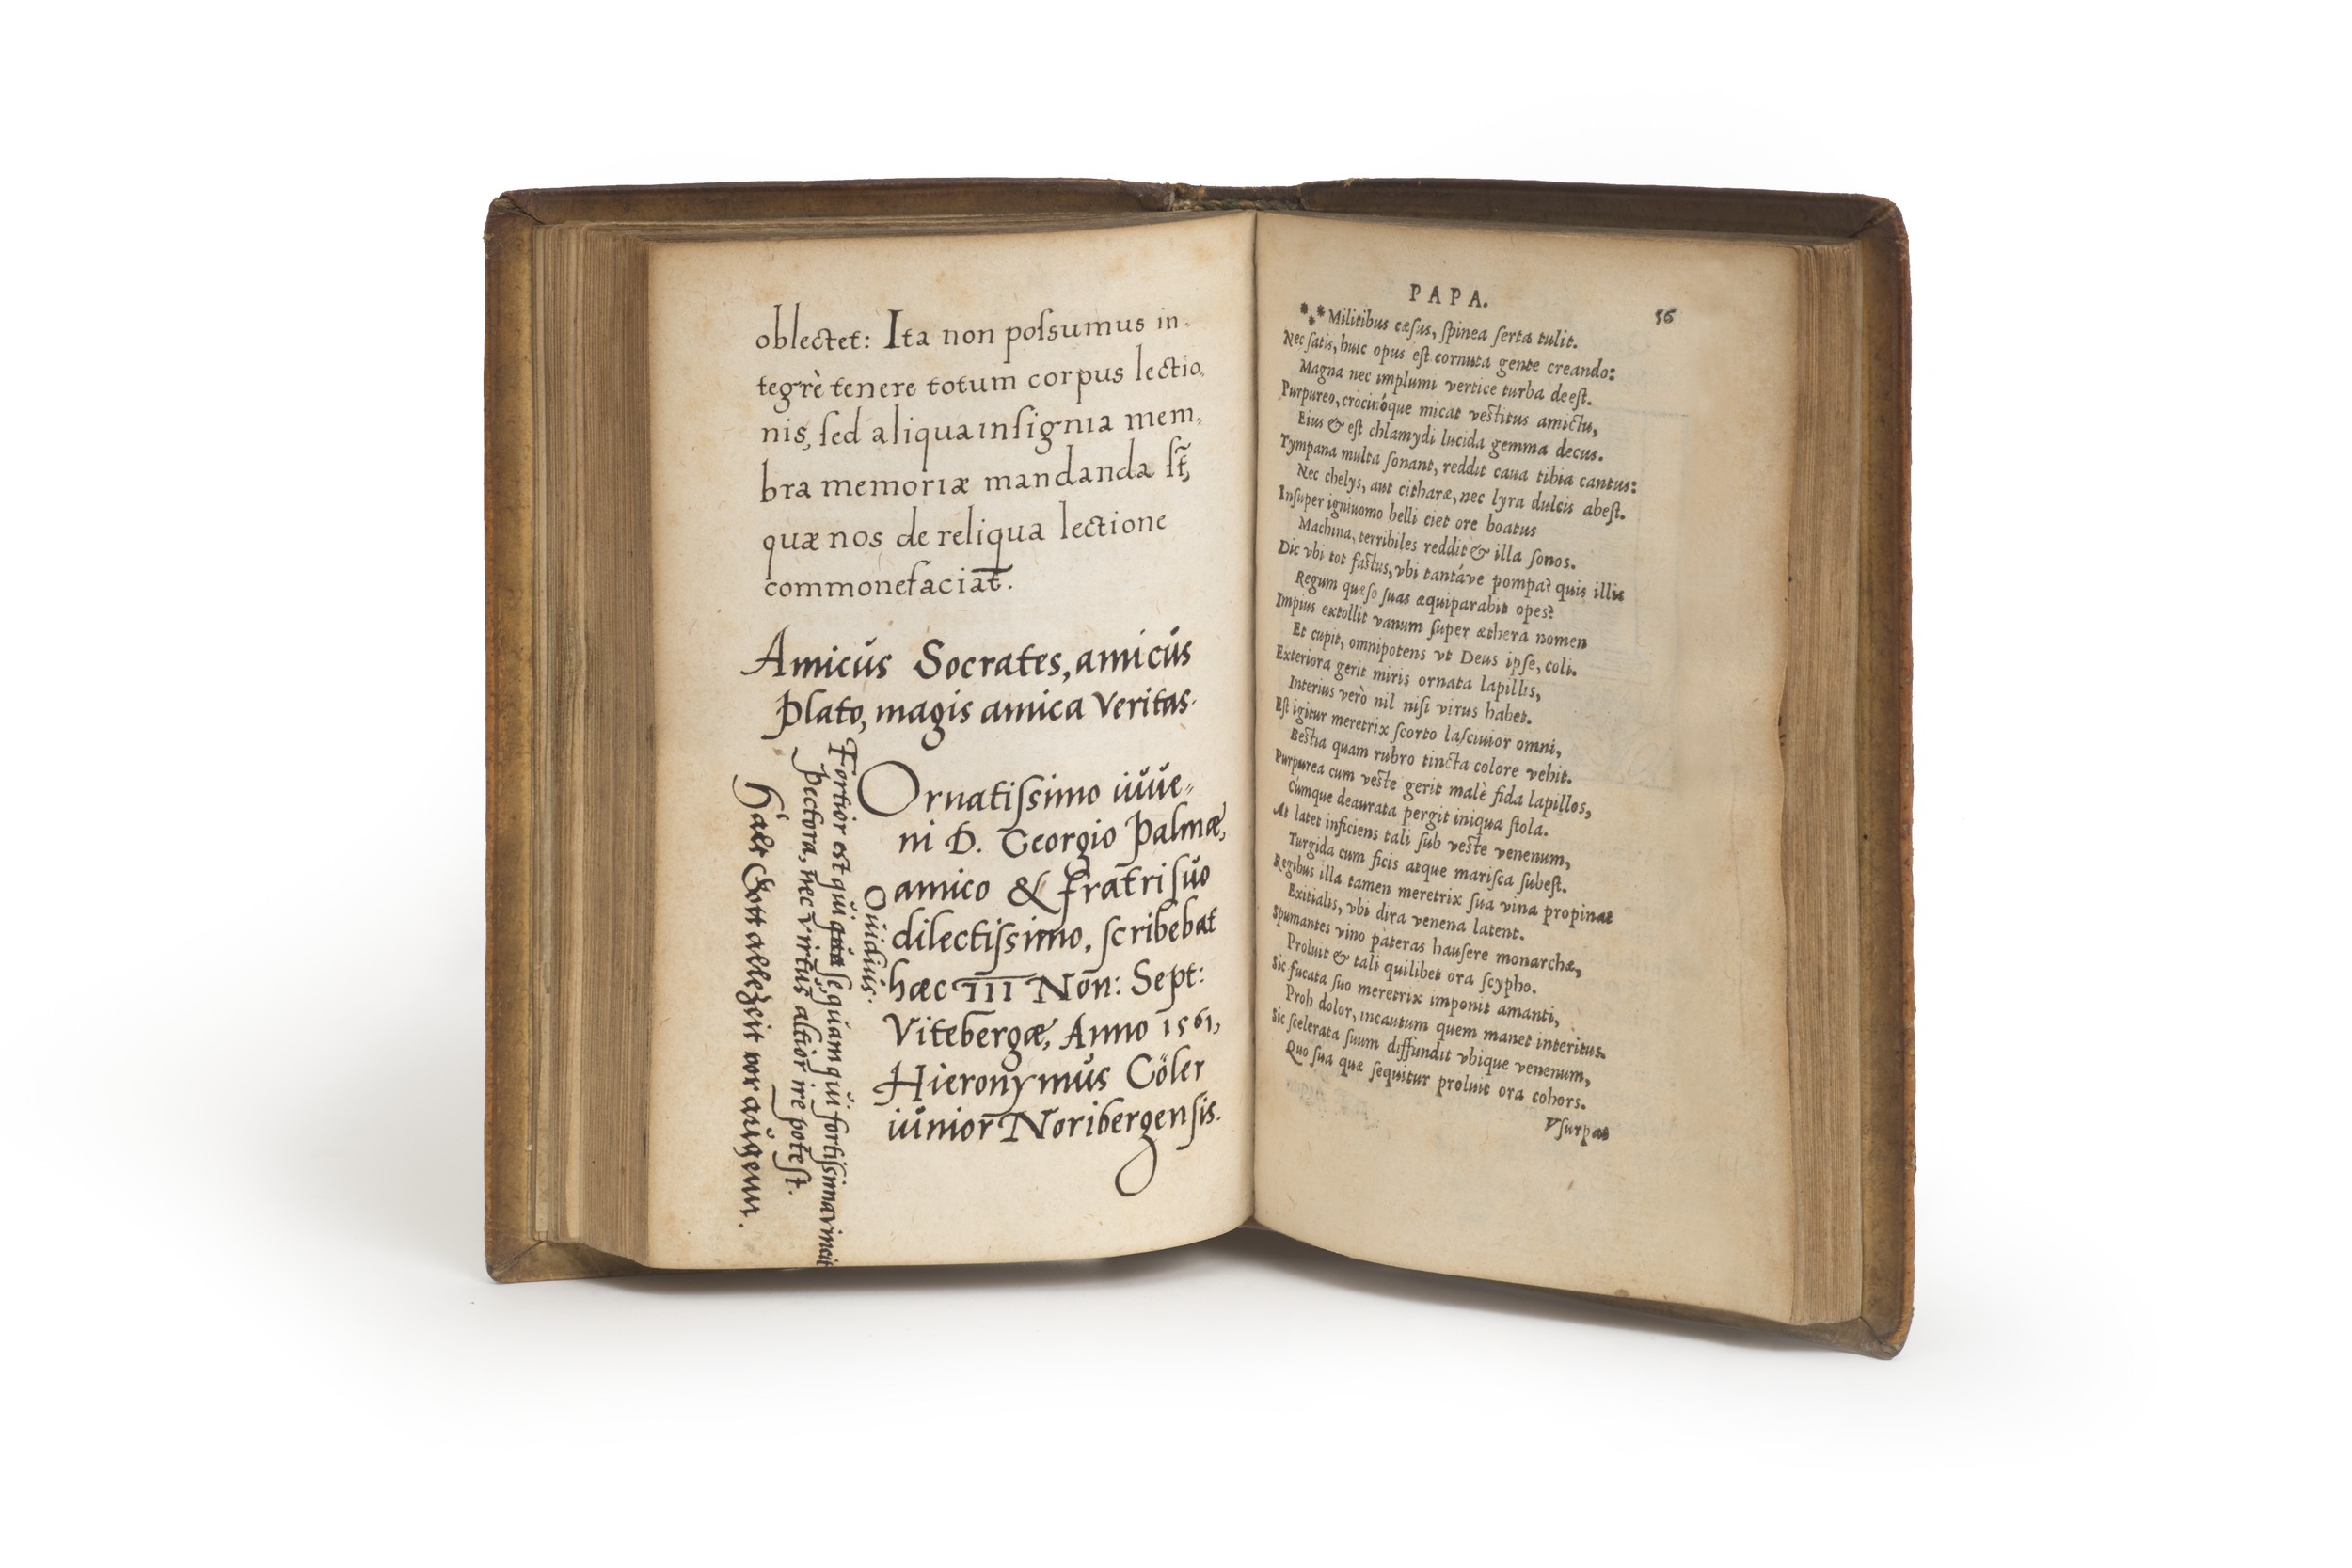 oblectet: Ita non poſsumus in-
tegrè tenere totum corpus lectio-
nis, ſed aliqua inſignia mem-
bra memoriæ mandanda ſt̃,
quæ nos de reliqua lectione
commonefaciāt.
Amicŭs Socrates, amicŭs
Plato, magis amica Veritas.
Ornatiſsimo iŭŭe-
ni D. Georgio Palmæ,
amico & fratri ſŭo
dilectiſsimo, ſcribebat
hæc III Nōn: Sept:
Vitebergæ, Anno 1561,
Hieronymŭs Cöler
iŭnior Noribergenſis.
Fortior est qŭi se quam qŭi fortiſsima vincit
pectora, nec virtŭs altior ire poteſt.
Ouidius.
Halt Gott allezeit vor aŭgenn.
PAPA. 56
⁂Militibus cæſus, ſpinea ſerta tulit.
Nec ſatis, huic opus eſt cornuta gente creando:
Magna nec implumi vertice turba deeſt.
Purpureo, crocinóque micat veſtitus amictu,
Eius & eſt chlamydi lucida gemma decus.
Tympana multa ſonant, reddit caua tibia cantus:
Nec chelys, aut citharæ, nec lyra dulcis abeſt.
Inſuper igniuomo belli ciet ore boatus
Machina, terribiles reddit & illa ſonos.
Dic vbi tot faſtus, vbi tantáve pompa? quis illis
Regum quæſo ſuas æquiparabit opes?
Impius extollit vanum ſuper æthera nomen
Et cupit, omnipotens vt Deus ipſe, coli.
Exteriora gerit miris ornata lapillis,
Interius verò nil niſi virus habet.
Eſt igitur meretrix ſcorto laſciuior omni,
Beſtia quam rubro tincta colore vehit.
Purpurea cum veſte gerit malè fida lapillos,
Cúmque deaurata pergit iniqua ſtola.
At latet inficiens tali ſub veſte venenum,
Turgida cum ficis atque mariſca ſubeſt.
Regibus illa tamen meretrix ſua vina propinat
Exitialis, vbi dira venena latent.
Spumantes vino pateras hauſere monarchæ,
Proluit & tali quilibet ora ſcypho.
Sic fucata ſuo meretrix imponit amanti,
Proh dolor, incautum quem manet interitus.
Sic ſcelerata ſuum diffundit vbique venenum,
Quo ſua quæ ſequitur proluit ora cohors.
Vſurpat